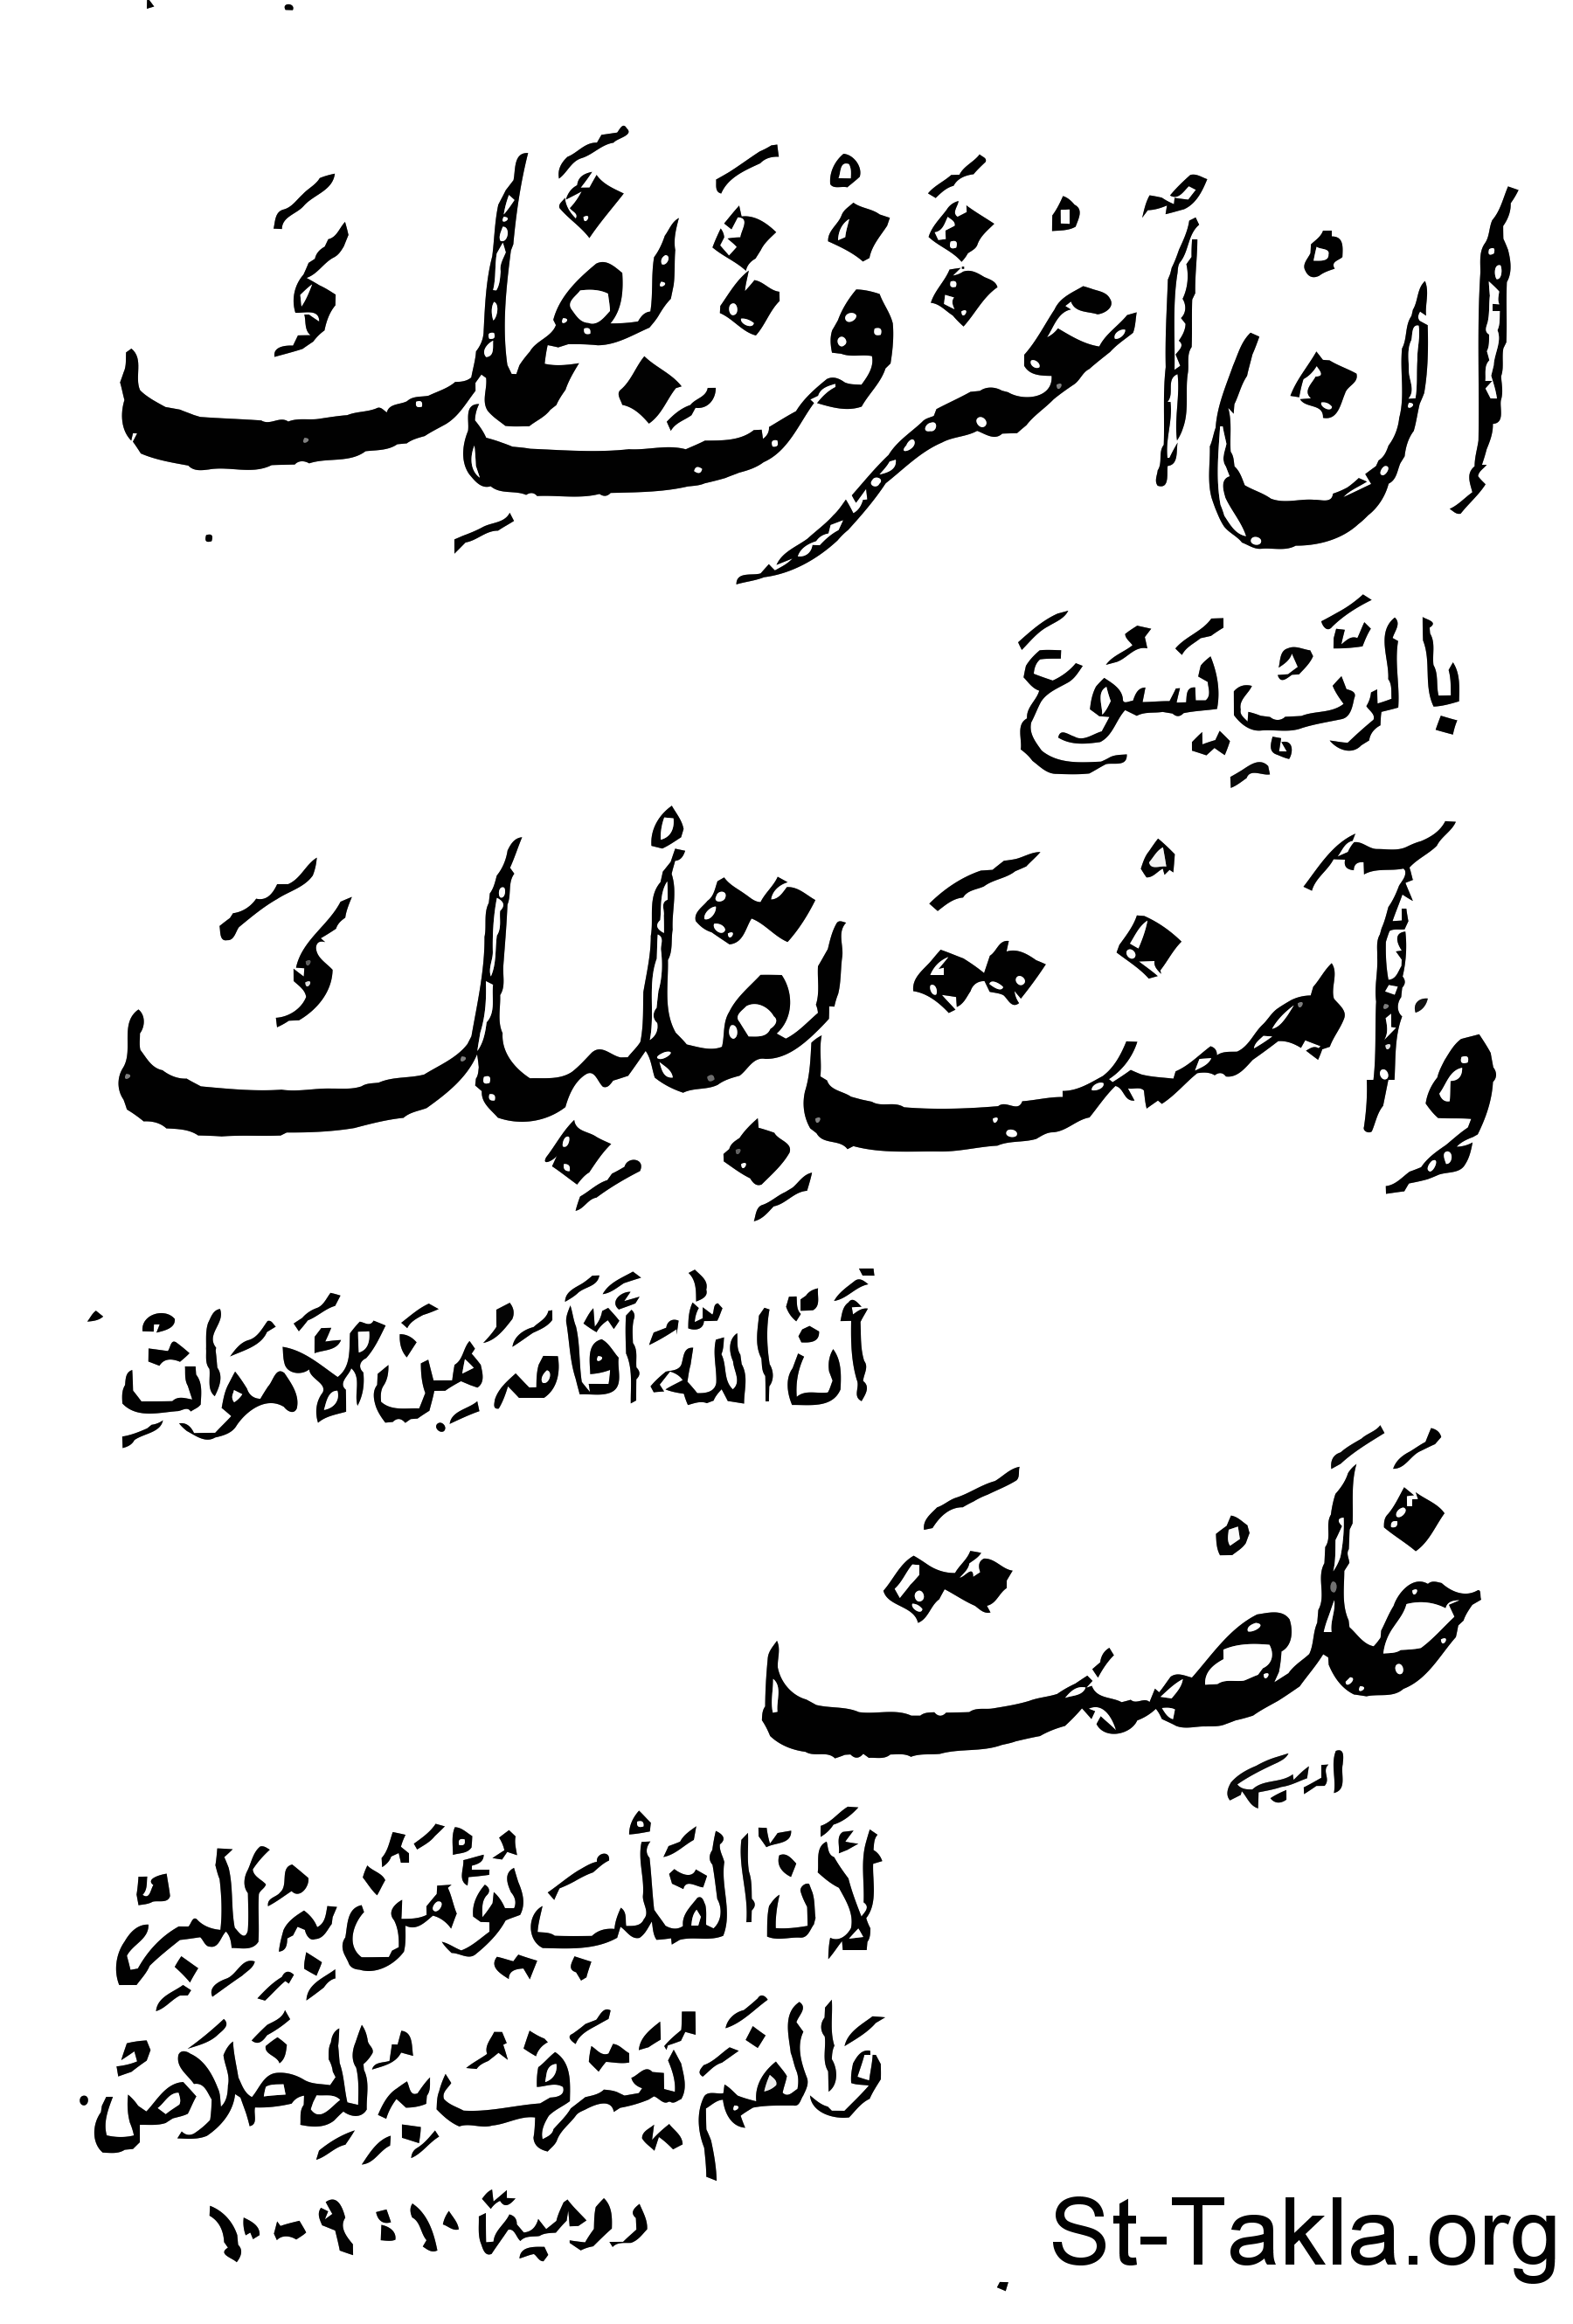 اِنْ اَعْتَرَفْتَ بِفَمِكَ
بِالرَّبِّ يَسُوعَ
وَآمَنْتَ بِقَلْبِكَ
أَنَّ اللهَ أَقَامَهُ مِنَ الأَمْوَاتِ
خَلَصْتَ
لِأَنَّ الْقَلْبَ يُؤْمِنُ بِهِ لِلْبِرِّ
وَالْفَمَ يَعْتَرِفُ بِهِ لِلْخَلَاصِ
رومية ١٠: ٩-١٠
St-Takla.org